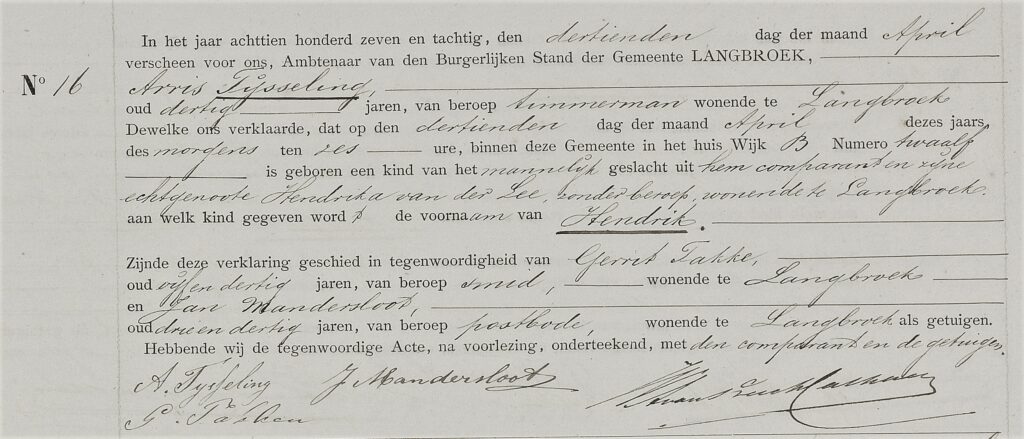 In het jaar achttien honderd zeven en tachtig, den dertienden dag der maand April
verscheen voor ons, Ambtenaar van den Burgerlijken Stand der Gemeente LANGBROEK,
No 16
Arris Tijsseling,
oud dertig jaren, van beroep timmerman wonende te Langbroek
Dewelke ons verklaarde, dat op den dertienden dag der maand April dezes jaars,
des morgens ten zes ure, binnen deze Gemeente in het huis Wijk B Numero twaalf
is geboren een kind van het mannelijk geslacht uit hem comparant en zijne
echtgenoote Hendrika van der Lee, zonder beroep, wonende te Langbroek.
aan welk kind gegeven wordt de voornaam van Hendrik.
Zijnde deze verklaring geschied in tegenwoordigheid van Gerrit Takke,
oud vijf en dertig jaren, van beroep smid, wonende te Langbroek
en Jan Mandersloot,
oud drie en dertig jaren, van beroep postbode, wonende te Langbroek als getuigen.
Hebbende wij de tegenwoordige Acte, na voorlezing, onderteekend, met den comparant en de getuigen.
A. Tijsseling J Mandersloot
G. Takken